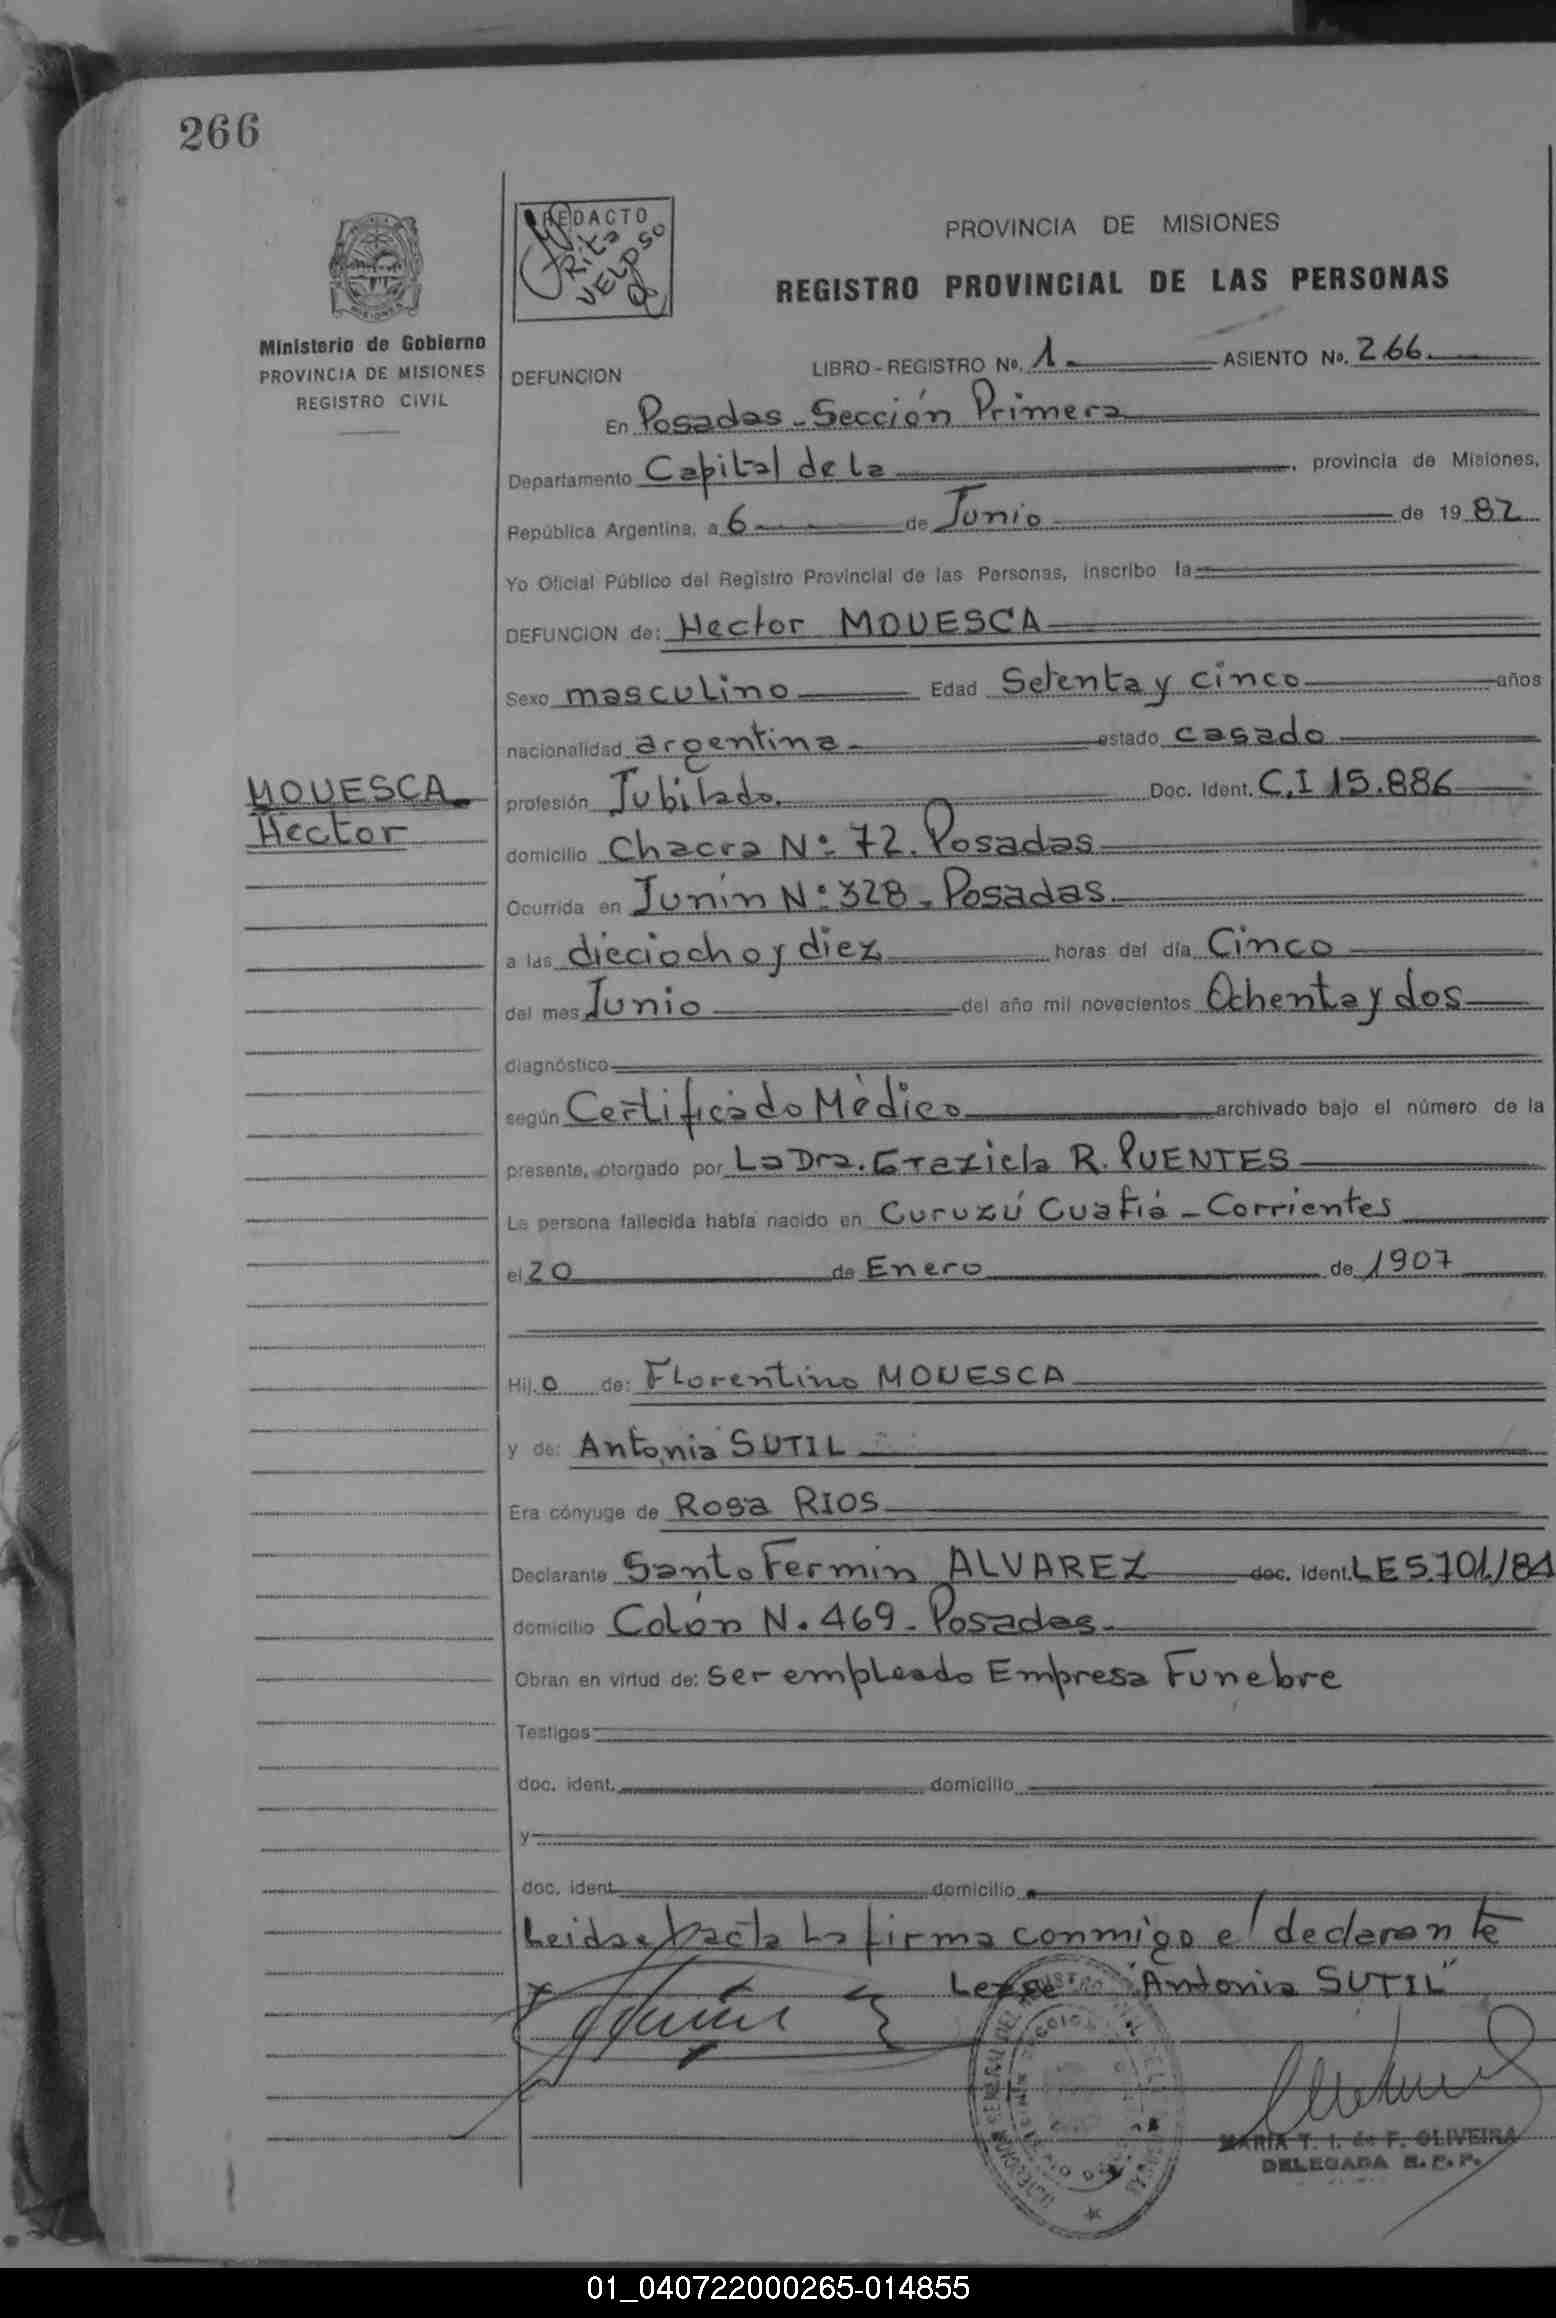 266
REDACTO
Rita
VELOSO
PROVINCIA DE MISIONES
REGISTRO PROVINCIAL DE LAS PERSONAS
Ministerio de Gobierno
PROVINCIA DE MISIONES
REGISTRO CIVIL
DEFUNCION
LIBRO - REGISTRO No. 1 ASIENTO No. 266
En Posadas - Sección Primera
Departamento Capital de la , provincia de Misiones,
República Argentina, a 6 de Junio de 1982
Yo Oficial Público del Registro Provincial de las Personas, inscribo la
DEFUNCION de: Hector MOUESCA
Sexo masculino Edad Setenta y cinco años
nacionalidad argentina estado casado
MOUESCA
Hector
profesión Jubilado. Doc. Ident. C.I 15.886
domicilio Chacra Nº 72. Posadas
Ocurrida en Junín Nº 328 - Posadas
a las dieciocho y diez horas del día Cinco
del mes Junio del año mil novecientos Ochenta y dos
diagnóstico
según Certificado Mèdico archivado bajo el número de la
presente, otorgado por La Dra. Graziela R. PUENTES
La persona fallecida había nacido en Curuzú Cuatiá - Corrientes
el 20 de Enero de 1907
Hijo de: Florentino MOUESCA
y de: Antonia SUTIL
Era cónyuge de Rosa RIOS
Declarante Santo Fermin ALVAREZ doc. ident. LE
domicilio Colón N. 469 - Posadas
Obran en virtud de: ser empleado Empresa Funebre
Testigos
doc. ident. domicilio
y
doc. ident. domicilio
Leida acta La firma conmigo el declarante
"Antonia SUTIL"
MARIA T. I. de F. OLIVEIRA
DELEGADA R. P. P.
01_040722000265-014855